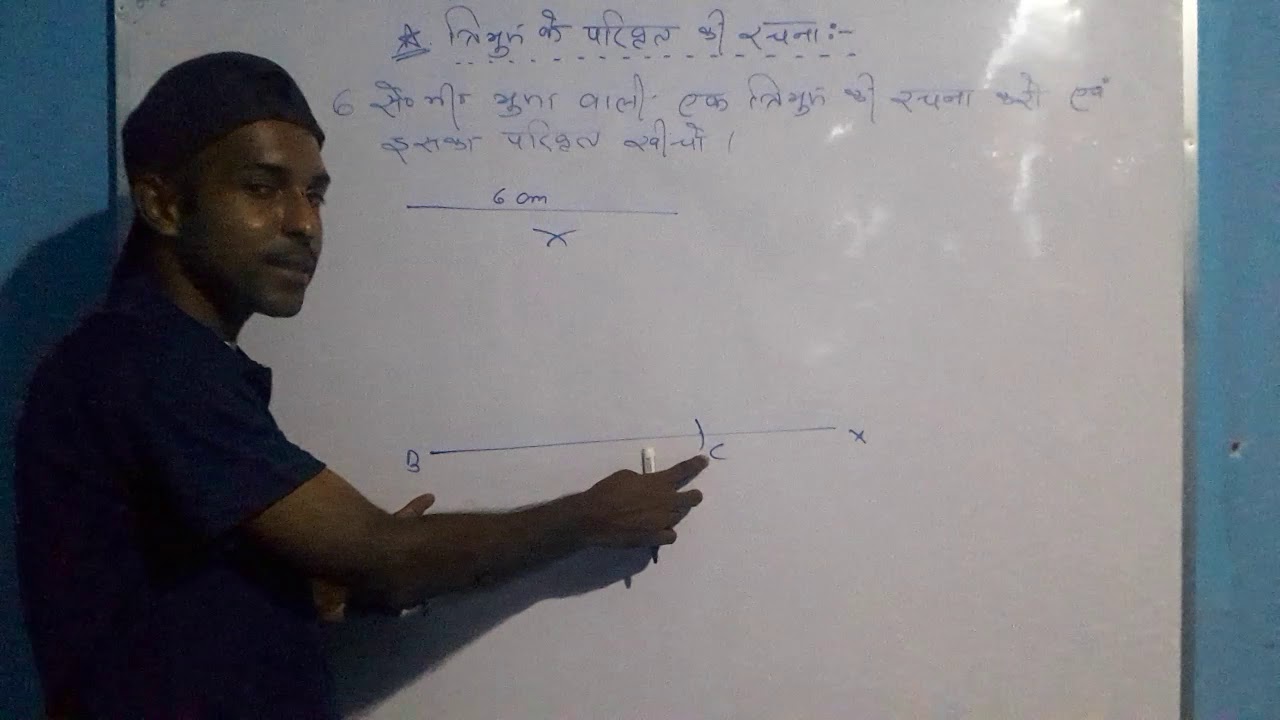 ☆ त्रिभुज के परिवृत की रचना :-
6 से० मी० भुजा वाली एक त्रिभुज की रचना करो एवं
इसका परिवृत खींचो ।
6 cm
B C X